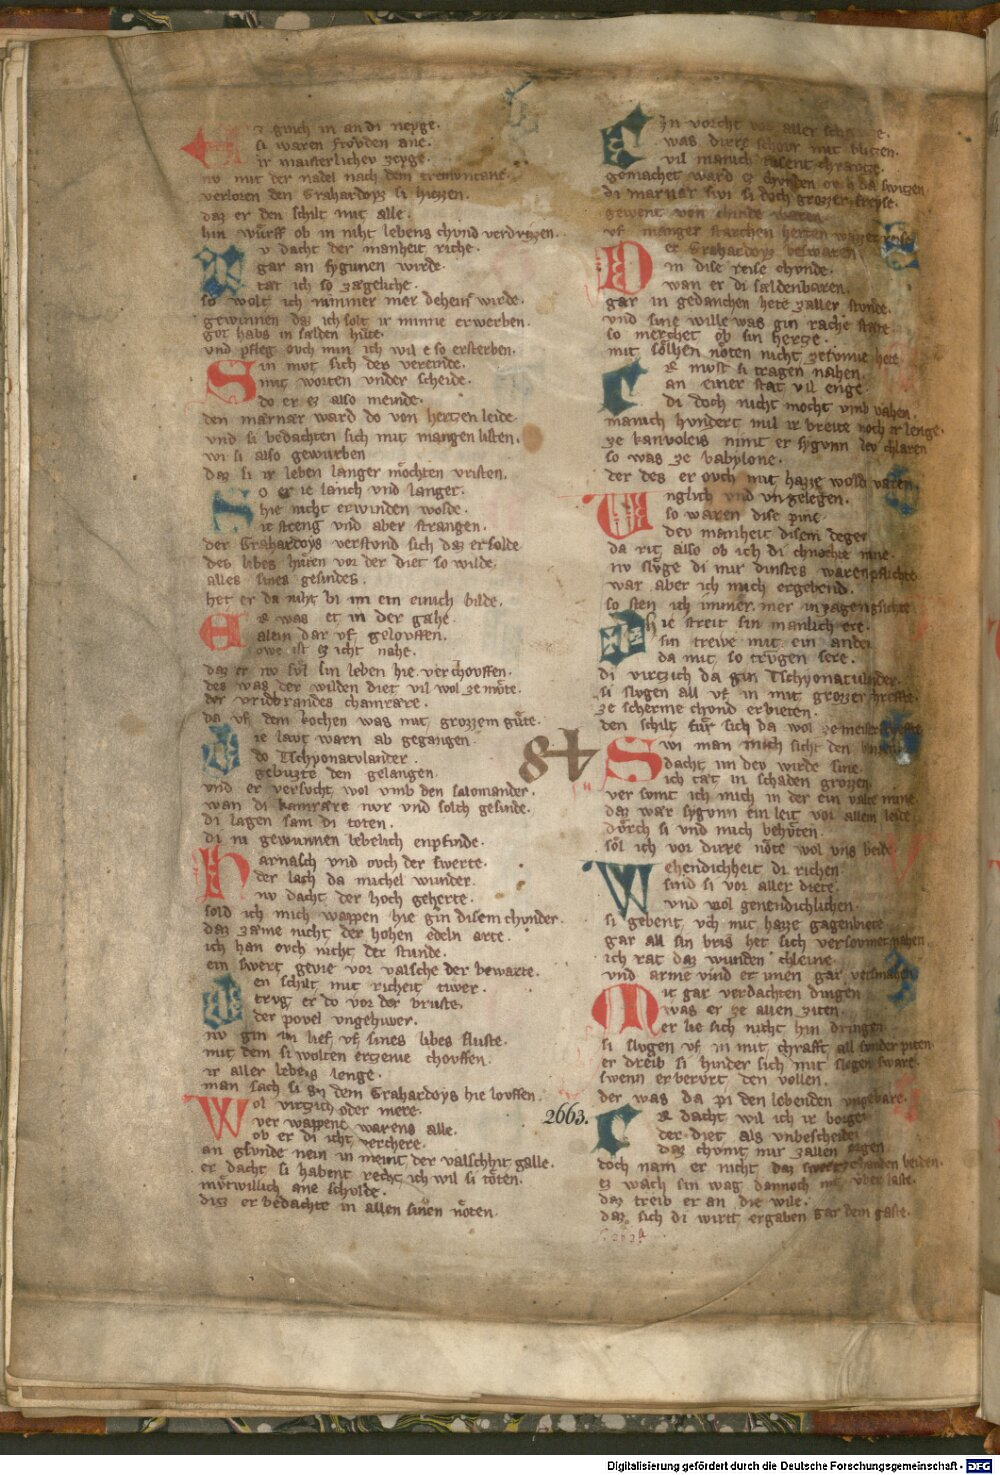 Ez ginch in an di neyge.
si waren frovden ane.
ir maisterlicher zeyge.
nv mit der nadel nach dem tremuntane.
verloren den Grahardoyz si hiezzen.
daz er den schilt mit alle.
hin wurff ob in niht lebens chvnd verdriezzen.
v dacht der manheit riche.
gar an sygunen wirde.
tæt ich so zægeliche.
so wolt ich nimmer mer deheins wirde.
gewinnen daz ich solt ir minne erwerben.
got habs in sælden hute.
vnd pfleg ovch min ich wil e so ersterben.
Sin mvt sich des vereinde.
mit worten vnder scheide.
do er ez also meinde.
den marnær ward do von hertzen leide.
vnd si bedachten sich mit mangen listen.
wi si also gewurben
daz si ir leben langer mochten vristen.
So er ie lanch vnd langer.
hie nicht erwinden wolde.
ir streng vnd aber strangen.
der Grahardoys verstvnd sich daz er solde
des libes huten vor der diet so wilde.
alles sines gesindes.
het er da niht bi im ein einich bilde.
Er was et in der gahe.
alein dar vf gelovffen.
owe ist ez icht nahe.
daz er nv sol sin leben hie verchovffen.
des was der wilden diet vil wol ze mvte.
der vridbrandes chamrære.
da vf dem kochen was mit grozzem gute.
Die lavt warn ab gegangen.
do Tschyonatulander.
gebuzte den gelangen.
vnd er versucht wol vmb den salomander.
wan di kamrære nvr vnd solch gesinde.
di lagen sam di toten.
di ni gewunnen lebelich enpfinde.
Harnasch vnd ovch der swerte.
der lach da michel wunder.
nv dacht der hoch geherte.
sold ich mich wappen hie gin disem chunder.
daz zæme nicht der hohen edeln arte.
ich han ovch nicht der stunde.
ein swert gevie vor valsche der bewarte.
Den schilt mit richeit tiwer.
trvg er do vor der bruste.
der povel vngehiwer.
nv gin im lief vf sines libes fluste.
mit dem si wolten ertzenie chovffen.
ir aller lebens lenge.
man sach si an dem Grahardoys hie lovffen.
Wol virtzich oder mere.
ver wappent warens alle.
ob er di icht verchere.
an sunde nein in meint der valschhit galle.
er dacht si habent recht ich wil si toten.
mvtwillich ane schulde.
ditz er bedachte in allen sinen noten.
In vorcht vor aller
was dirre schovr mit blitzen.
vil manich
gomachet ward
di marnær swi si doch grozzer freyse.
gewent von chinde waren
vf manger starchen herten wazzer
Der Grahardoyz bewaren
in dise reise chvnde.
wan er di sældenbaren.
gar in gedanchen hete zaller stvnde.
vnd sine wille was gin rache stæte
so merchet ob sin hertze.
mit solhen noten nicht
Er mvst si tragen nahen.
an einer stat vil enge.
di doch nicht mocht vmb vahen.
manich hvndert mil ir breite noch ir lenge.
ze kanvoleis nimt er sygvnn dev chlaren
so was ze babylone.
der des er ovch mit hazze wold varen.
Vnglich vnd vngelegen.
so waren dise pine
dev manheit disem degen
da rit also ob ich di chnechte mine
nv sluge di mir dinstes waren pflichte
wær aber ich mich ergebend.
so sten ich immer mer in zagen gesichte
Hie streit sin manlich ere.
sin trewe mit ein ander
da mit so trvgen sere.
di virtzich da gin Tschyonatulander.
si slvgen all vf in mit grozzer
ze scherme chond erbieten.
den schilt fur sich da wol ze
Swi man mich sicht den
dacht im dev wirde sine.
ich tæt in schaden grozzen
ver svmt ich mich in der ein valte mine
daz wær sygvnn ein leit vor allem leide
dvrch si vnd mich behvten.
sol ich vor dirre note wol vns beide
Wehendichheit di richen
sind si vor aller diete.
vnd wol genendichlichen.
si gebent vch mit hazze gagenbiete
gar all sin bris het sich versovmet
ich rat daz wunden chleine
vnd arme vind er imen gar versmahen
Mit gar verdachten dingen
was er ze allen ziten
er lie sich nicht hin dringen
si slvgen vf in mit chrafft all svnder piten
er dreib si hinder sich mit slegen sware
swenn er bervrt den vollen.
der was da pi den lebenden vngebare.
Er dacht wil ich ir borgen
der diet als vnbescheiden
daz chvmt mir zallen sorgen
doch nam er nicht daz swert ze handen beiden.
ez wach sin wag dannoch mit vber laste.
daz treib er an die wile.
daz sich di wirtt ergaben gar dem gaste.
84
2663.
Digitalisierung gefördert durch die Deutsche Forschungsgemeinschaft - DFG